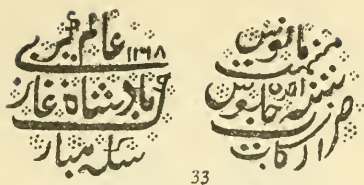 عالم گیر ۱۱۶۸
بادشاه غاز
سکه مبار
مانوس
میمنت
سنه جلوس
ضرب ارکات
33